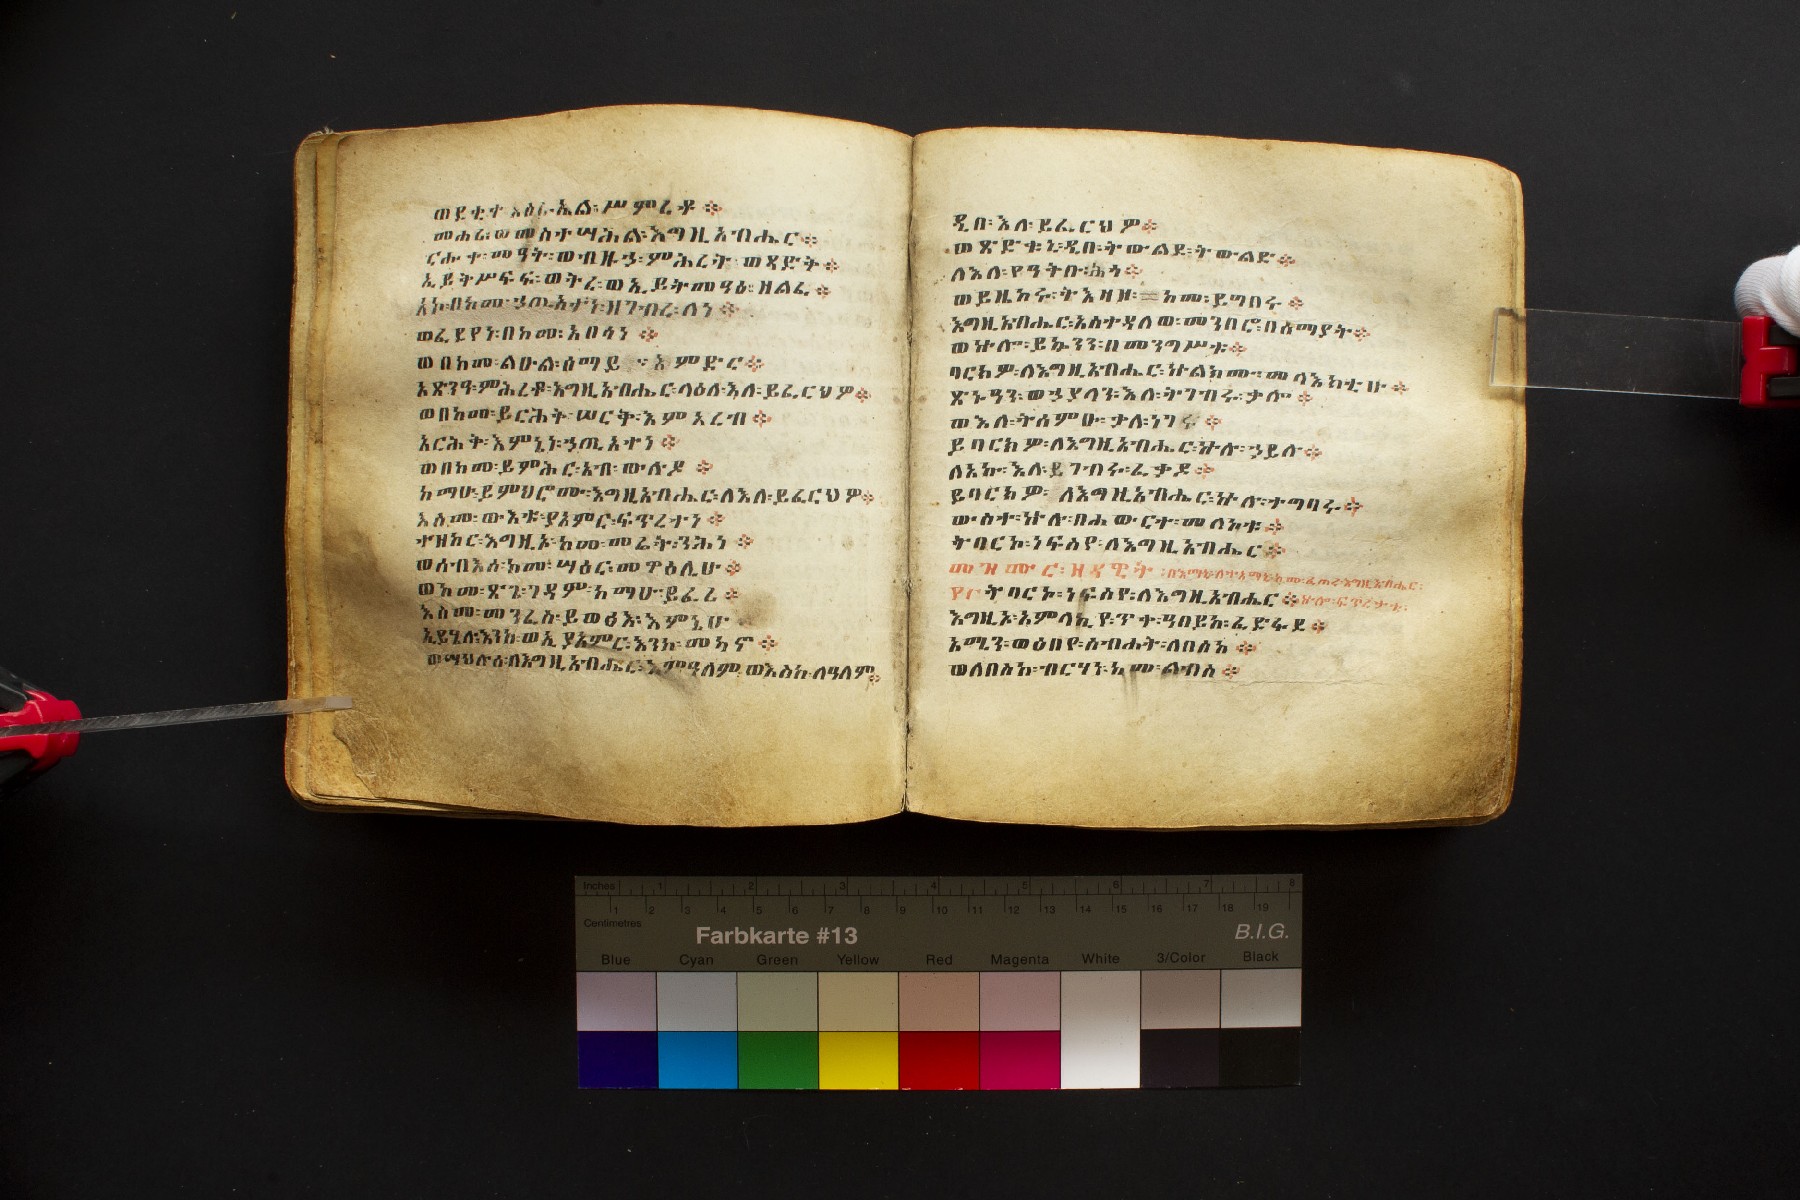 ወደቂቀ፡እስራኤል፡ሥምረቶ፨
መሐሪ፡ወመስተሣሕል፡እግዚአብሔር፨
ርሑቀ፡መዓት፡ወብዙኃ፡ምሕረት፡ወጻድቅ፨
ኢይትሥፍፍ፡ወትረ፡ወኢይትመዓዕ፡ዘልፈ፨
አኮ፡በከመ፡ኃጢአተነ፡ዘገብረ፡ለነ፨
ወፈደየነ፡በከመ፡አበሳነ፨
ወበከመ፡ልዑል፡ሰማይ፡እምድር፨
አጽንዓ፡ምሕረቶ፡እግዚአብሔር፡ላዕለ፡እለ፡ይፈርህዎ፨
ወበከመ፡ይርሕቅ፡ሠርቅ፡እምአረብ፨
አርሐቀ፡እምኔነ፡ኃጢአተነ፨
ወበከመ፡ይምሕር፡አብ፡ውሉዶ፨
ከማሁ፡ይምህሮሙ፡እግዚአብሔር፡ለእለ፡ይፈርህዎ፨
እስመ፡ውእቱ፡ያአምር፡ፍጥረተነ፨
ተዘከር፡እግዚኦ፡ከመ፡መሬት፡ንሕነ፨
ወሰብእሰ፡ከመ፡ሣዕር፡መዋዕሊሁ፨
ወከመ፡ጽጌ፡ገዳም፡ከማሁ፡ይፈሪ፨
እስመ፡መንፈስ፡ይወፅእ፡እምኔሁ
ኢይሄሉ፡እንከ፡ወኢያአምር፡እንከ፡መካኖ፨
ወሣህሉሰ፡ለእግዚአብሔር፡እምዓለም፡ወእስከ፡ለዓለም፨
ዲበ፡እለ፡ይፈርህዎ፨
ወጽድቁኒ፡ዲበ፡ትውልደ፡ትውልድ፨
ለእለ፡የዓትቡ፡ሕጎ፨
ወይዘከሩ፡ትእዛዞ፡ከመ፡ይግበሩ፨
እግዚአብሔር፡አስተዳለወ፡መንበሮ፡በሰማያት፨
ወኵሎ፡ይኴንን፡በመንግሥቱ፨
ባርክዎ፡ለእግዚአብሔር፡ኵልክሙ፡መላእክቲሁ፨
ጽኑዓን፡ወኃያላን፡እለ፡ትገብሩ፡ቃሎ፨
ወእለ፡ትሰምዑ፡ቃለ፡ነገሩ፨
ይባርክዎ፡ለእግዚአብሔር፡ኵሉ፡ኃይሉ፨
ለአኩ፡እለ፡ይገብሩ፡ፈቃዶ፨
ይባርክዎ፡ለእግዚአብሔር፡ኵሉ፡ተግባሩ፨
ውስተ፡ኵሉ፡በሐውርተ፡መለኮቱ፨
ትባርኮ፡ነፍስየ፡ለእግዚአብሔር፨
መዝሙር፡ዘዳዊት፡
ትባርኮ፡ነፍስየ፡ለእግዚአብሔር፨
እግዚኦ፡አምላኪየ፡ጥቀ፡ዓበይከ፡ፈድፋደ፨
አሚነ፡ወሰበየ፡ስብሐት፡ለበስከ፨
ወለበስከ፡ብርሃነ፡ከመ፡ልብስ፨
Inches 1 2 3 4 5 6 7 8
1 2 3 4 5 6 7 8 9 10 11 12 13 14 15 16 17 18 19
Centimetres
Farbkarte #13 B.I.G.
Blue Cyan Green Yellow Red Magenta White 3/Color Black